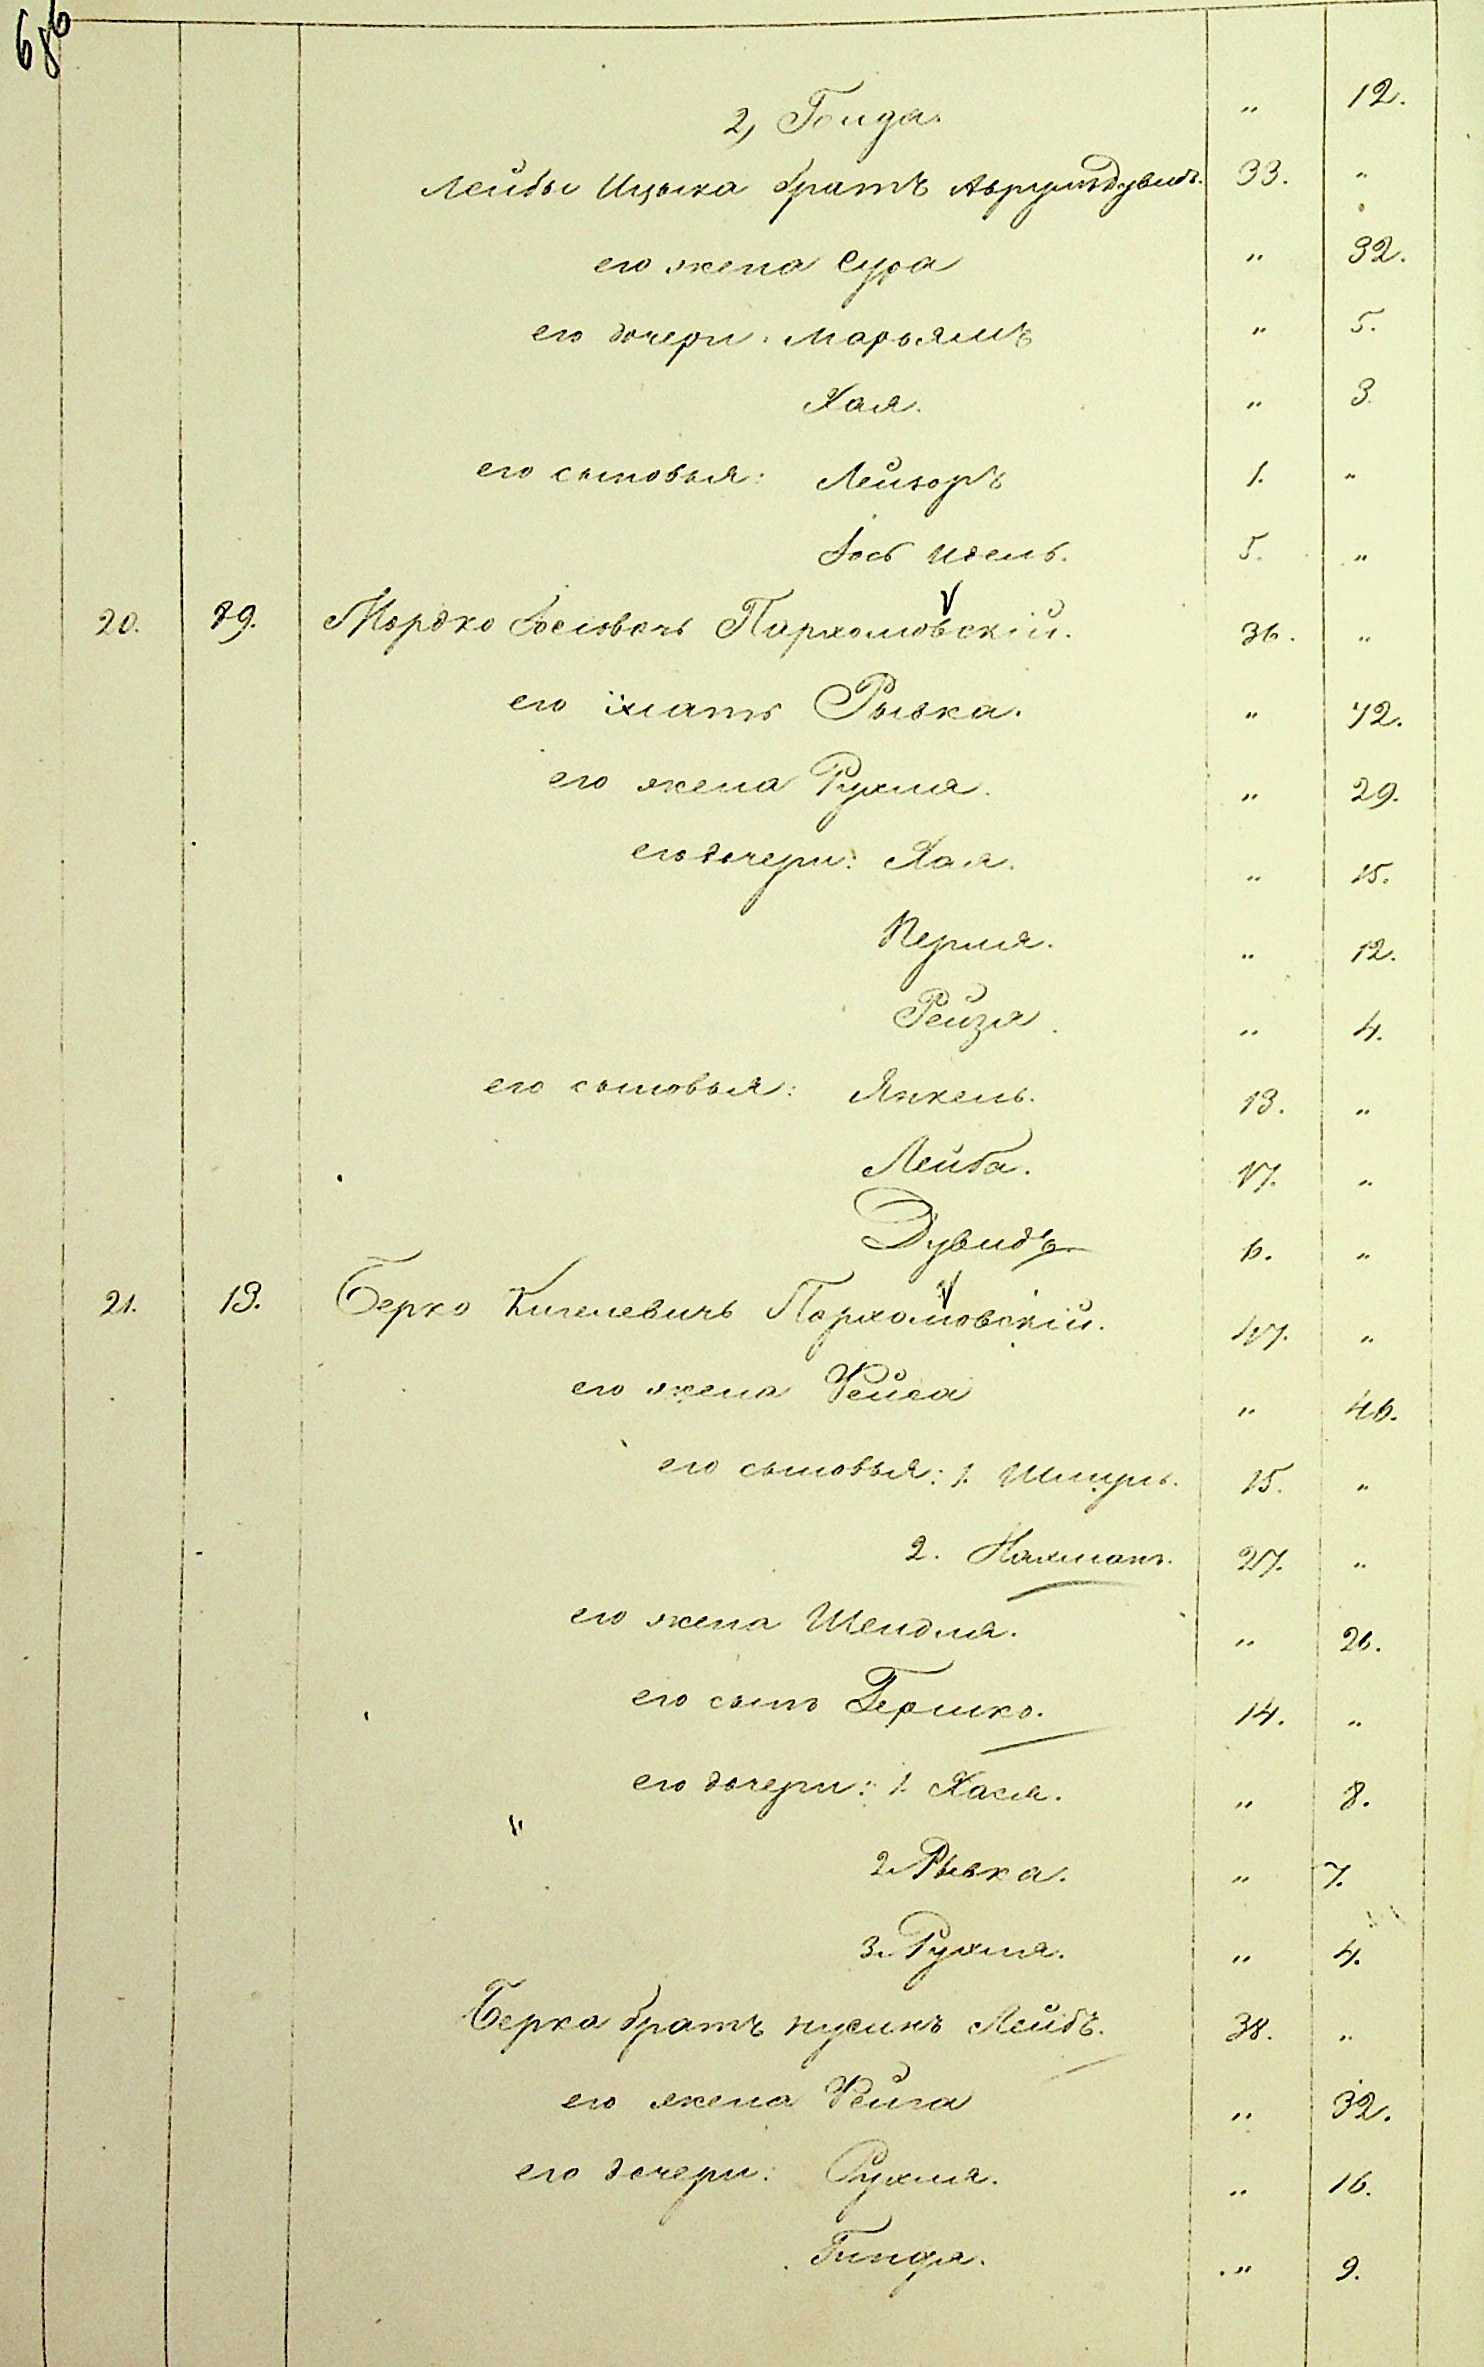 686
2, Гинда. " 12.
Лейбы Ицька братъ Аврумъ Дувидъ. 33. "
его жена Сура " 32.
его дочери: Марьямъ " 5.
Хая. " 3.
его сыновья: Лейзоръ 1. "
Іось Идель. 5. "
20. 89. Мордко Іосіовичъ Пархомовскій. 36. "
его мать Рывка. " 72.
его жена Рухля. " 29.
его дочери: Хая. " 15.
Перля. " 12.
Рейзя. " 4.
его сыновья: Янкель. 13. "
Лейба. 17. "
Дувидъ 6. "
21. 13. Берко Кигелевичъ Пархомовскій. 47. "
его жена Фейга " 46.
его сыновья: 1. Шмуль. 15. "
2. Нахманъ. 27. "
его жена Шендля. " 26.
его сынъ Гершко. 14. "
его дочери: 1. Хася. " 8.
"
2. Рывка. " 7.
3. Рухля. " 4.
Берка братъ Нусинъ Лейбъ. 38. "
его жена Фейга " 32.
его дочери: Рухля. " 16.
Гинда. " 9.